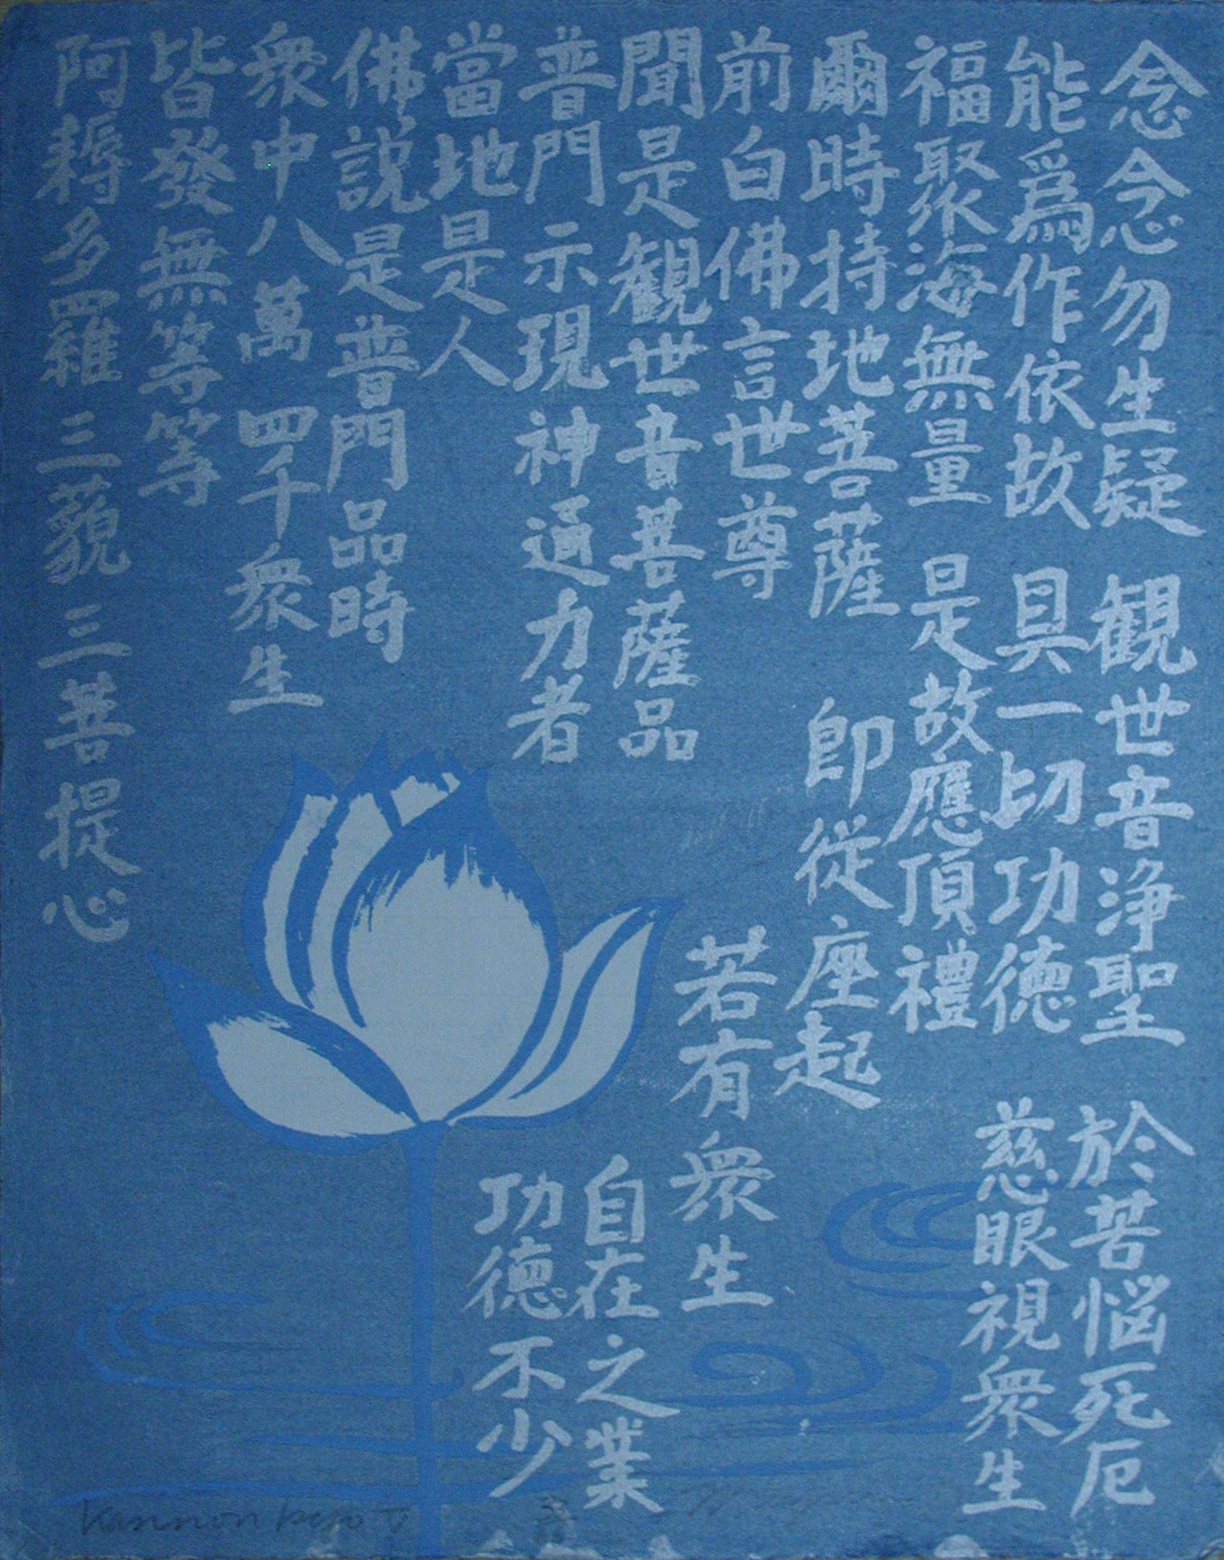 念念勿生疑 観世音浄聖 於苦悩死厄
能爲作依故 具一切功徳 慈眼視衆生
福聚海無量 是故應頂禮
爾時持地菩薩 即從座起
前白佛言世尊 若有衆生
聞是観世音菩薩品 自在之業
普門示現神通力者 功德不少
當地是人
佛説是普門品時
衆中八萬四千衆生
皆發無等等
阿耨多羅三藐三菩提心
Kannon kyo V